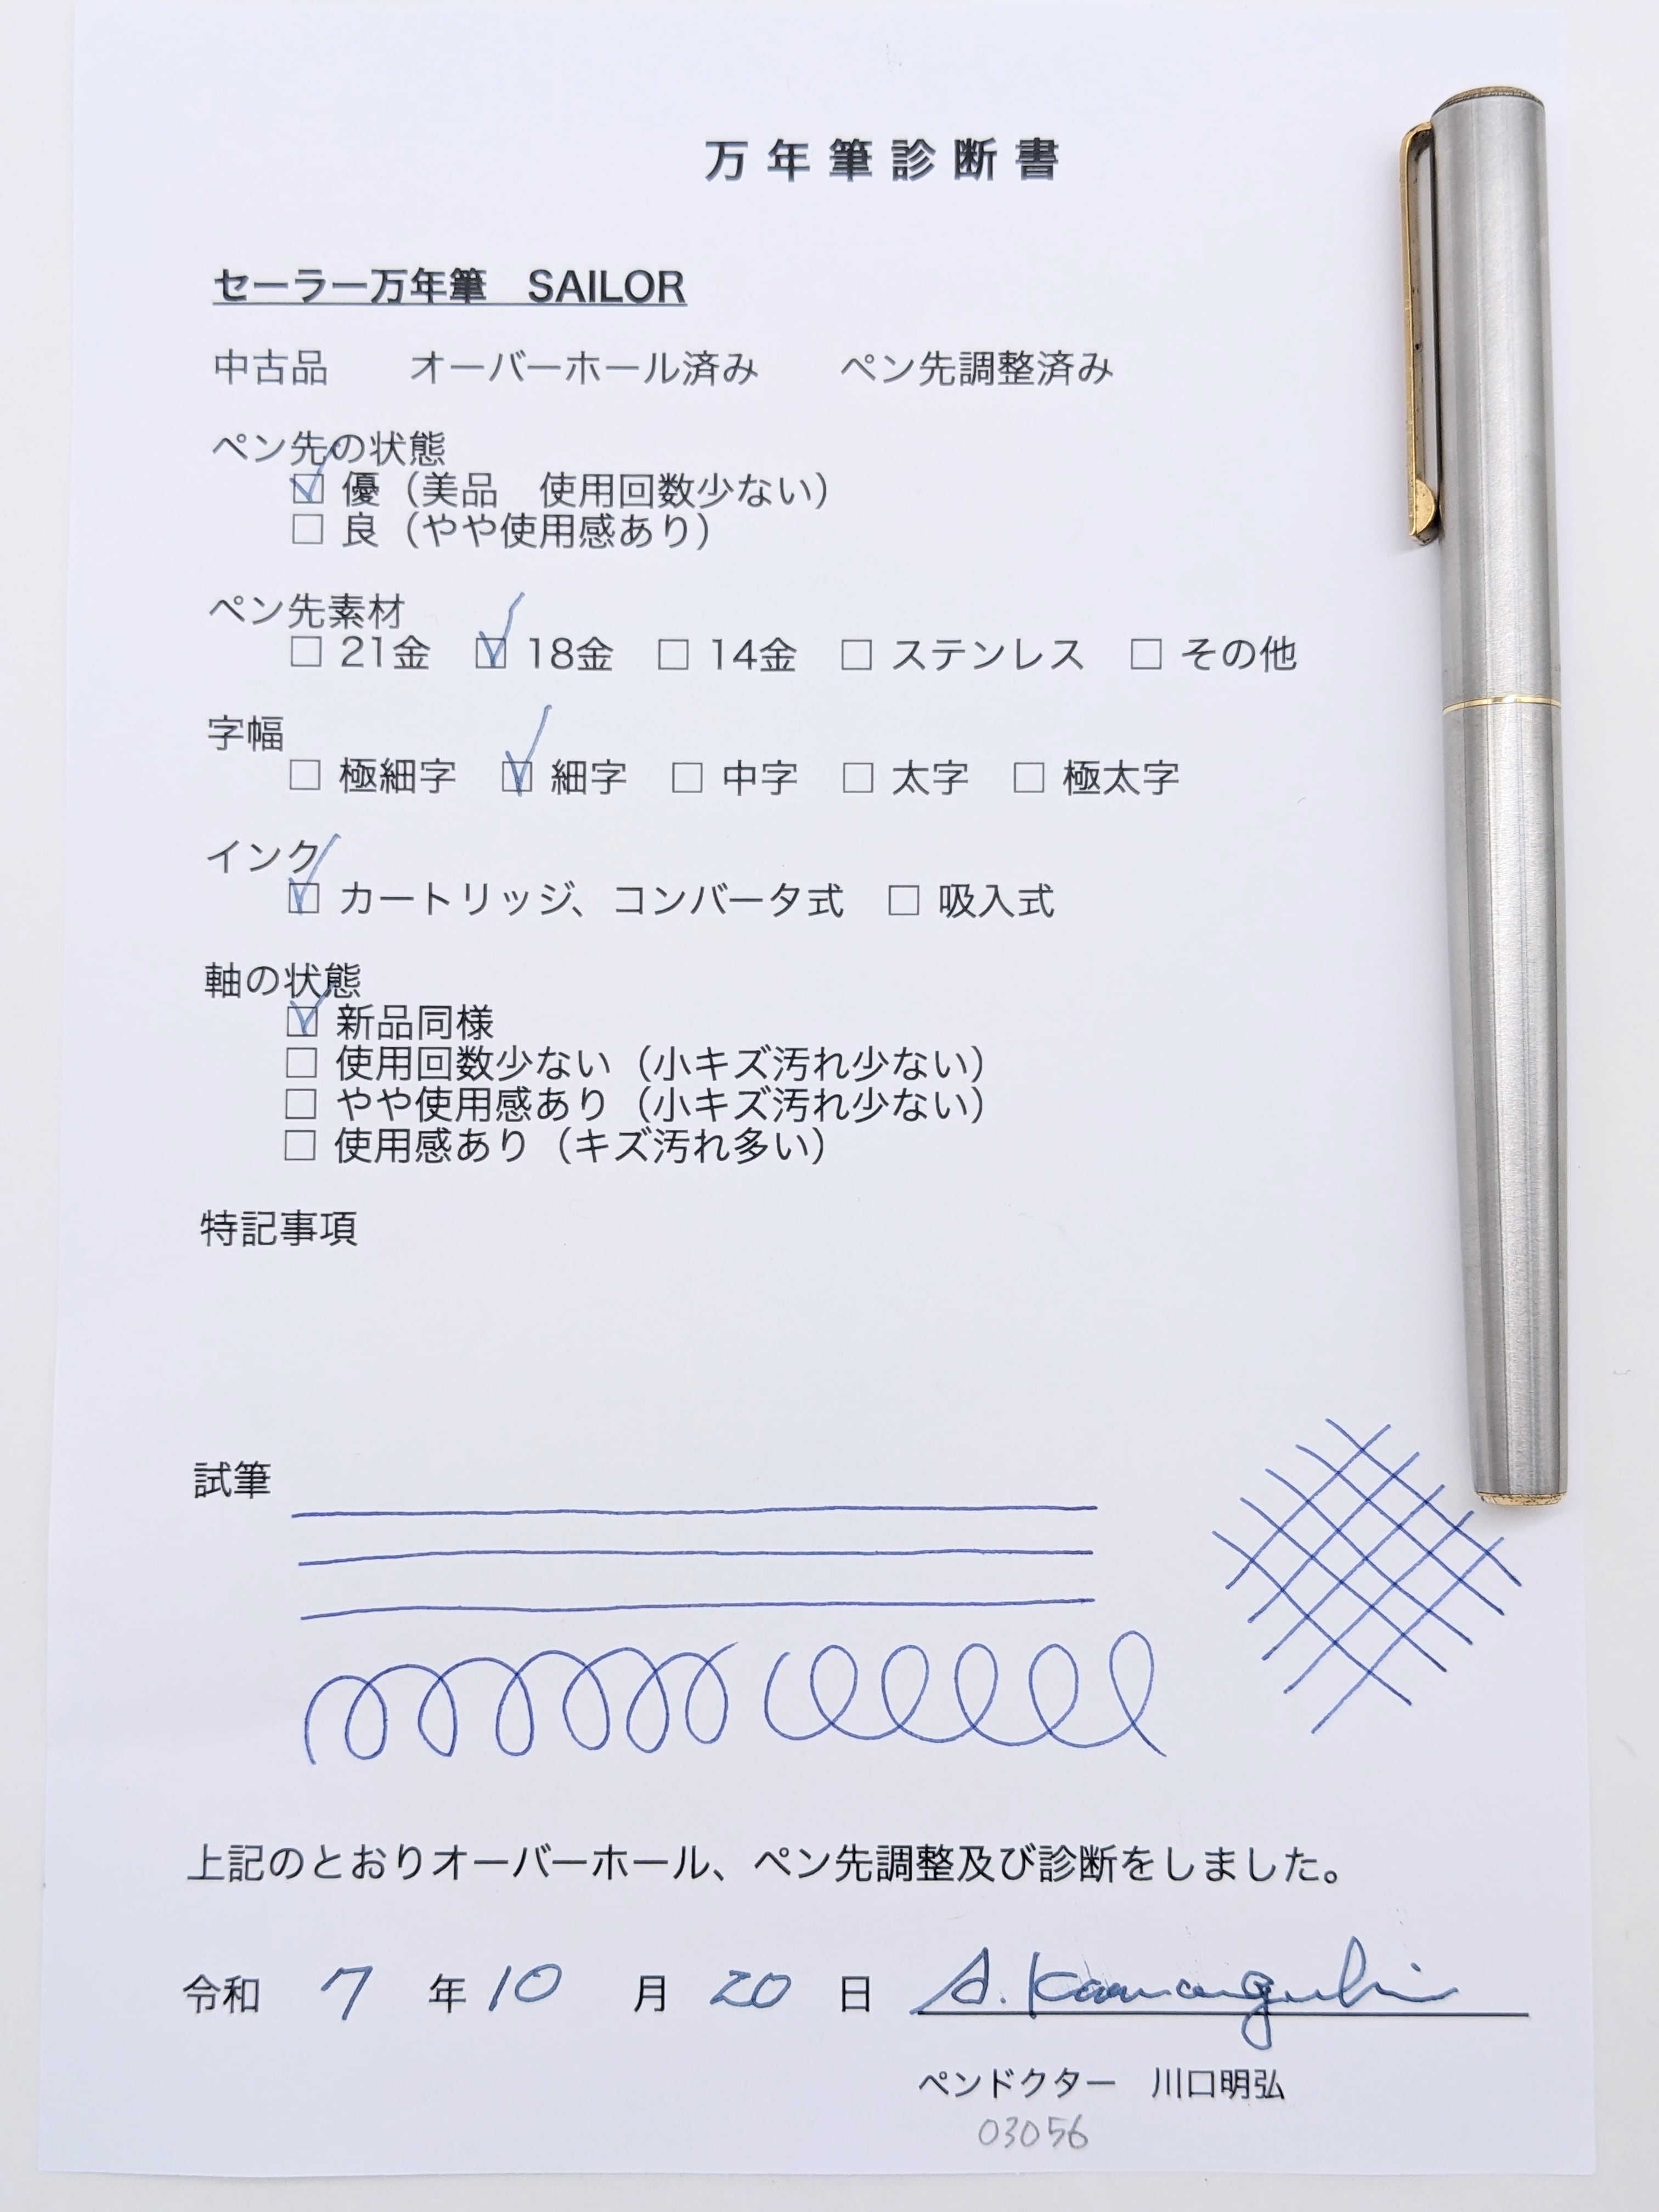 万年筆診断書
セーラー万年筆　SAILOR
中古品　　オーバーホール済み　　ペン先調整済み
ペン先の状態
☑ 優（美品　使用回数少ない）
☐ 良（やや使用感あり）
ペン先素材
☐ 21金　☑ 18金　☐ 14金　☐ ステンレス　☐ その他
字幅
☐ 極細字　☑ 細字　☐ 中字　☐ 太字　☐ 極太字
インク
☑ カートリッジ、コンバータ式　☐ 吸入式
軸の状態
☑ 新品同様
☐ 使用回数少ない（小キズ汚れ少ない）
☐ やや使用感あり（小キズ汚れ少ない）
☐ 使用感あり（キズ汚れ多い）
特記事項
試筆
上記のとおりオーバーホール、ペン先調整及び診断をしました。
令和　7　年 10　月　20　日　A. Kawaguchi
ペンドクター　川口明弘
03056